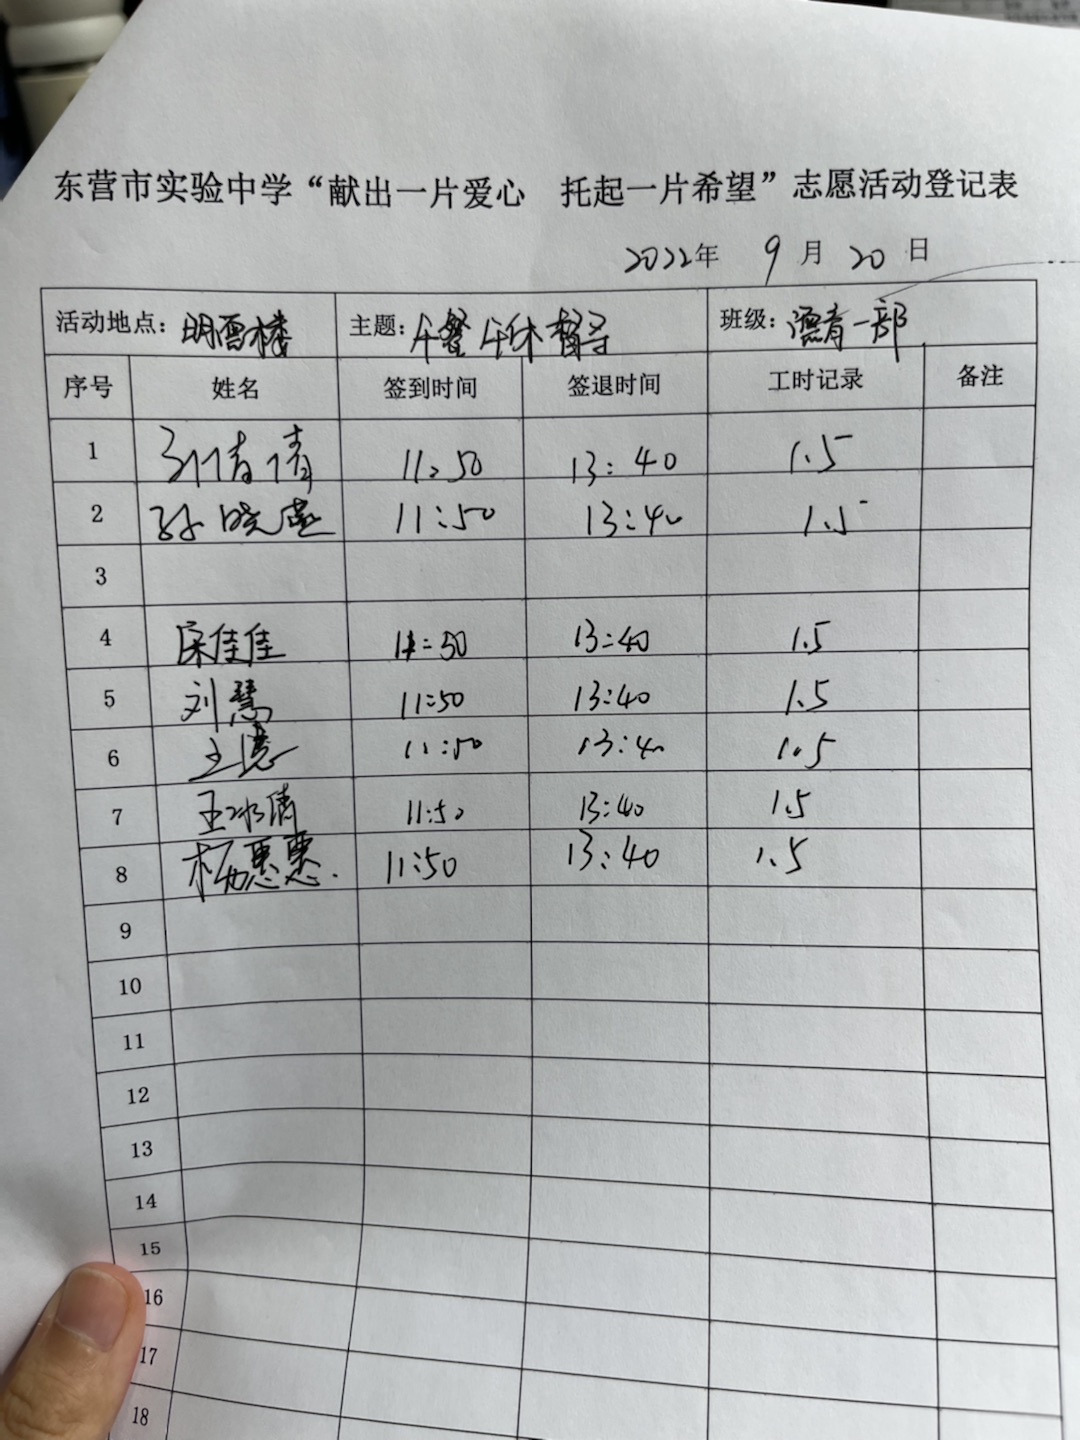 东营市实验中学“献出一片爱心 托起一片希望”志愿活动登记表
2022年 9月 20日
活动地点: 明 楼 主题: 午餐午休督导 班级: 一部
序号 姓名 签到时间 签退时间 工时记录 备注
1 倩倩 11:50 13:40 1.5
2 孙晓 11:50 13:40 1.5
3
4 佳佳 11:50 13:40 1.5
5 刘慧 11:50 13:40 1.5
6 王 11:50 13:40 1.5
7 王冰倩 11:50 13:40 1.5
8 杨惠惠. 11:50 13:40 1.5
9
10
11
12
13
14
15
16
17
18